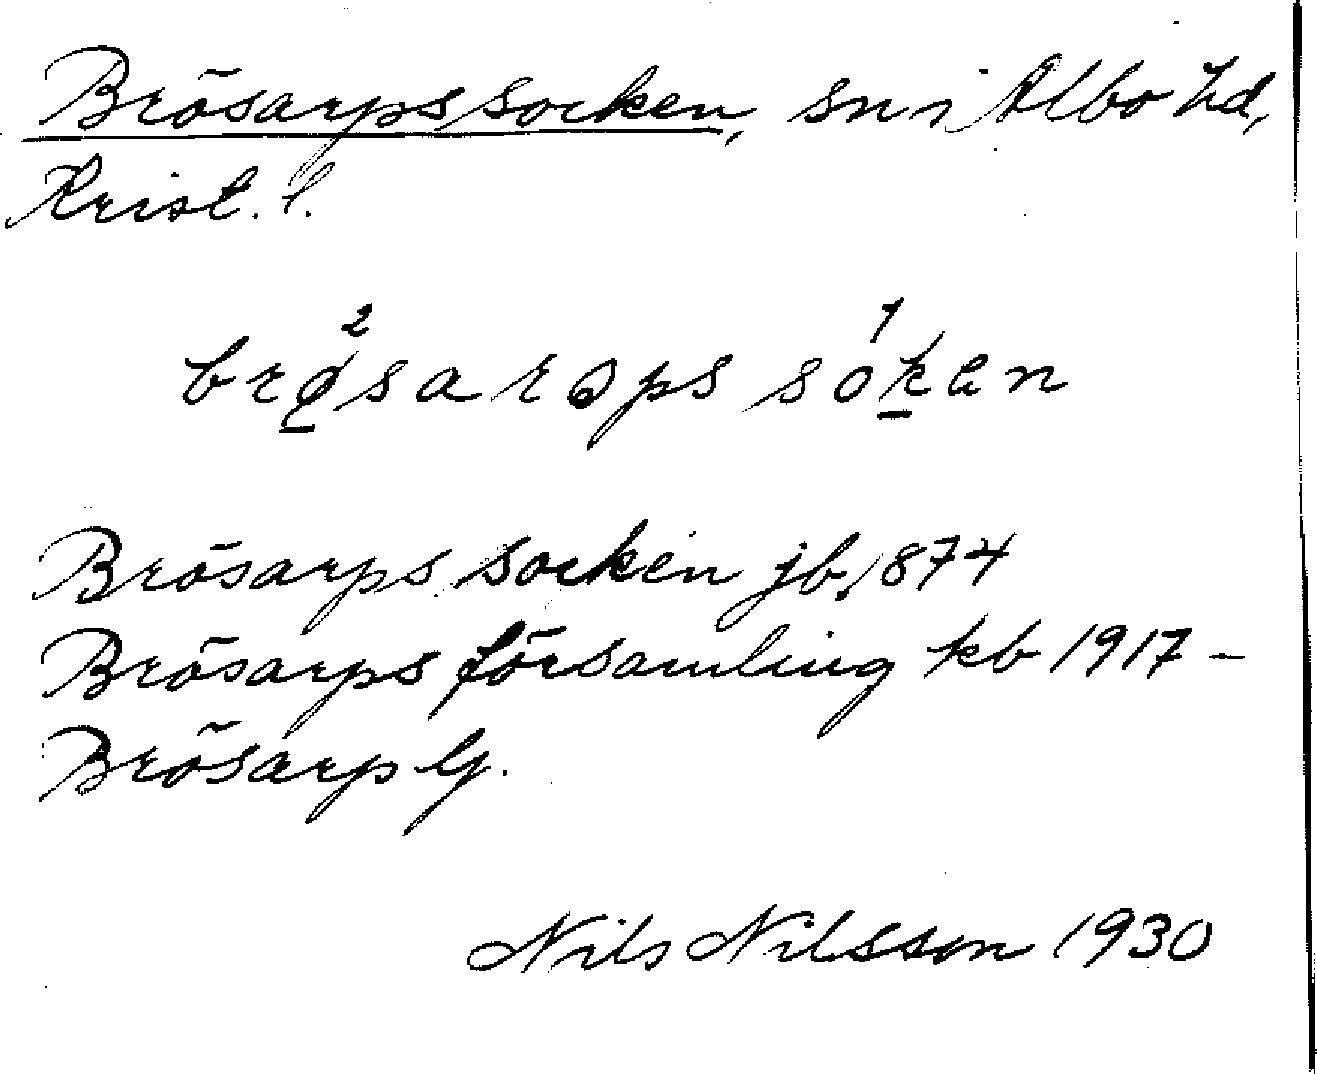 Brösarps socken, sn i Albo hd,
Krist. l.
brø²sarəps so¹ken
Brösarps socken jb 1874
Brösarps församling kb 1917 –
Brösarp G.
Nils Nilsson 1930